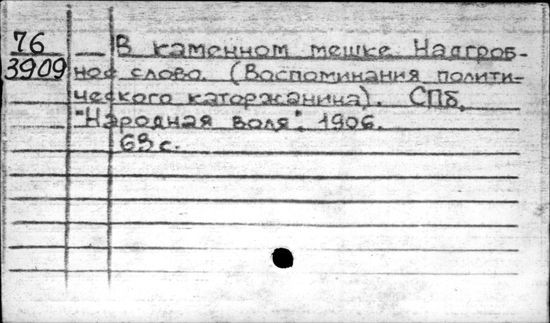 76
3909
— В каменном мешке. Надгроб-
ное слово. (Воспоминания полити-
ческого каторжанина). СПб,
"Народная воля", 1906.
63 с.